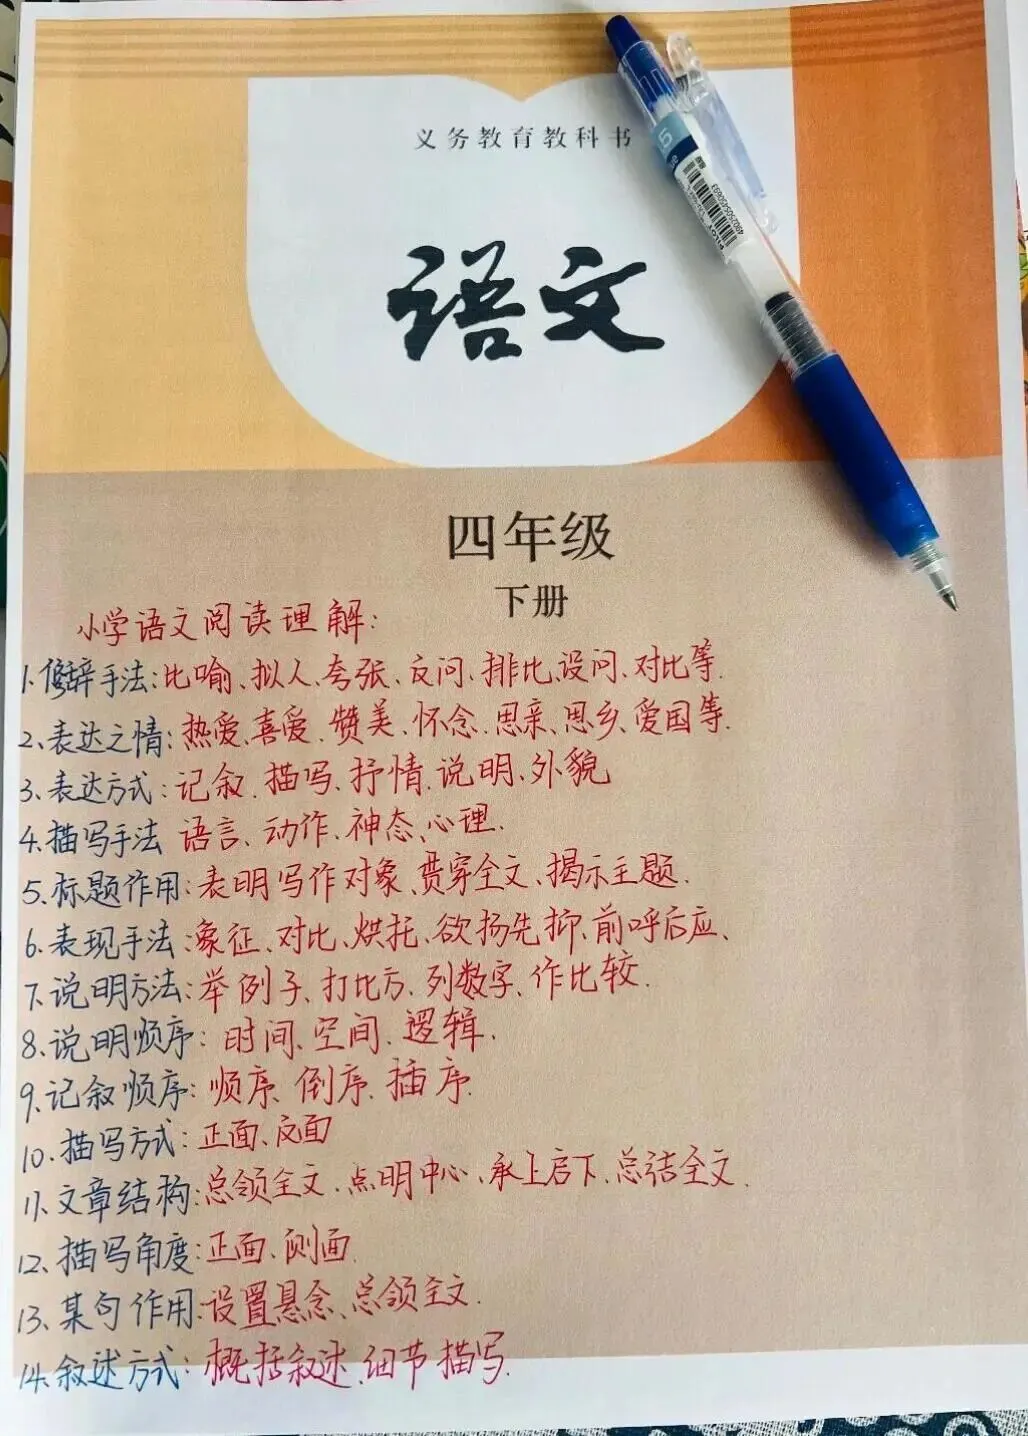 义务教育教科书
语文
四年级
下册
小学语文阅读理解:
1.修辞手法:比喻、拟人、夸张、反问、排比、设问、对比等.
2、表达之情:热爱、喜爱、赞美、怀念、思亲、思乡、爱国等.
3、表达方式:记叙、描写、抒情、说明、外貌
4、描写手法 语言、动作、神态、心理.
5、标题作用:表明写作对象、贯穿全文、揭示主题.
6、表现手法:象征、对比、烘托、欲扬先抑、前呼后应、
7、说明方法:举例子、打比方、列数字、作比较.
8、说明顺序:时间、空间、逻辑.
9、记叙顺序:顺序、倒序、插序.
10、描写方式:正面、反面
11、文章结构:总领全文、点明中心、承上启下、总结全文.
12、描写角度:正面、侧面.
13、某句作用:设置悬念、总领全文.
14、叙述方式:概括叙述、细节描写.
0.5
PILOT
4902505450693